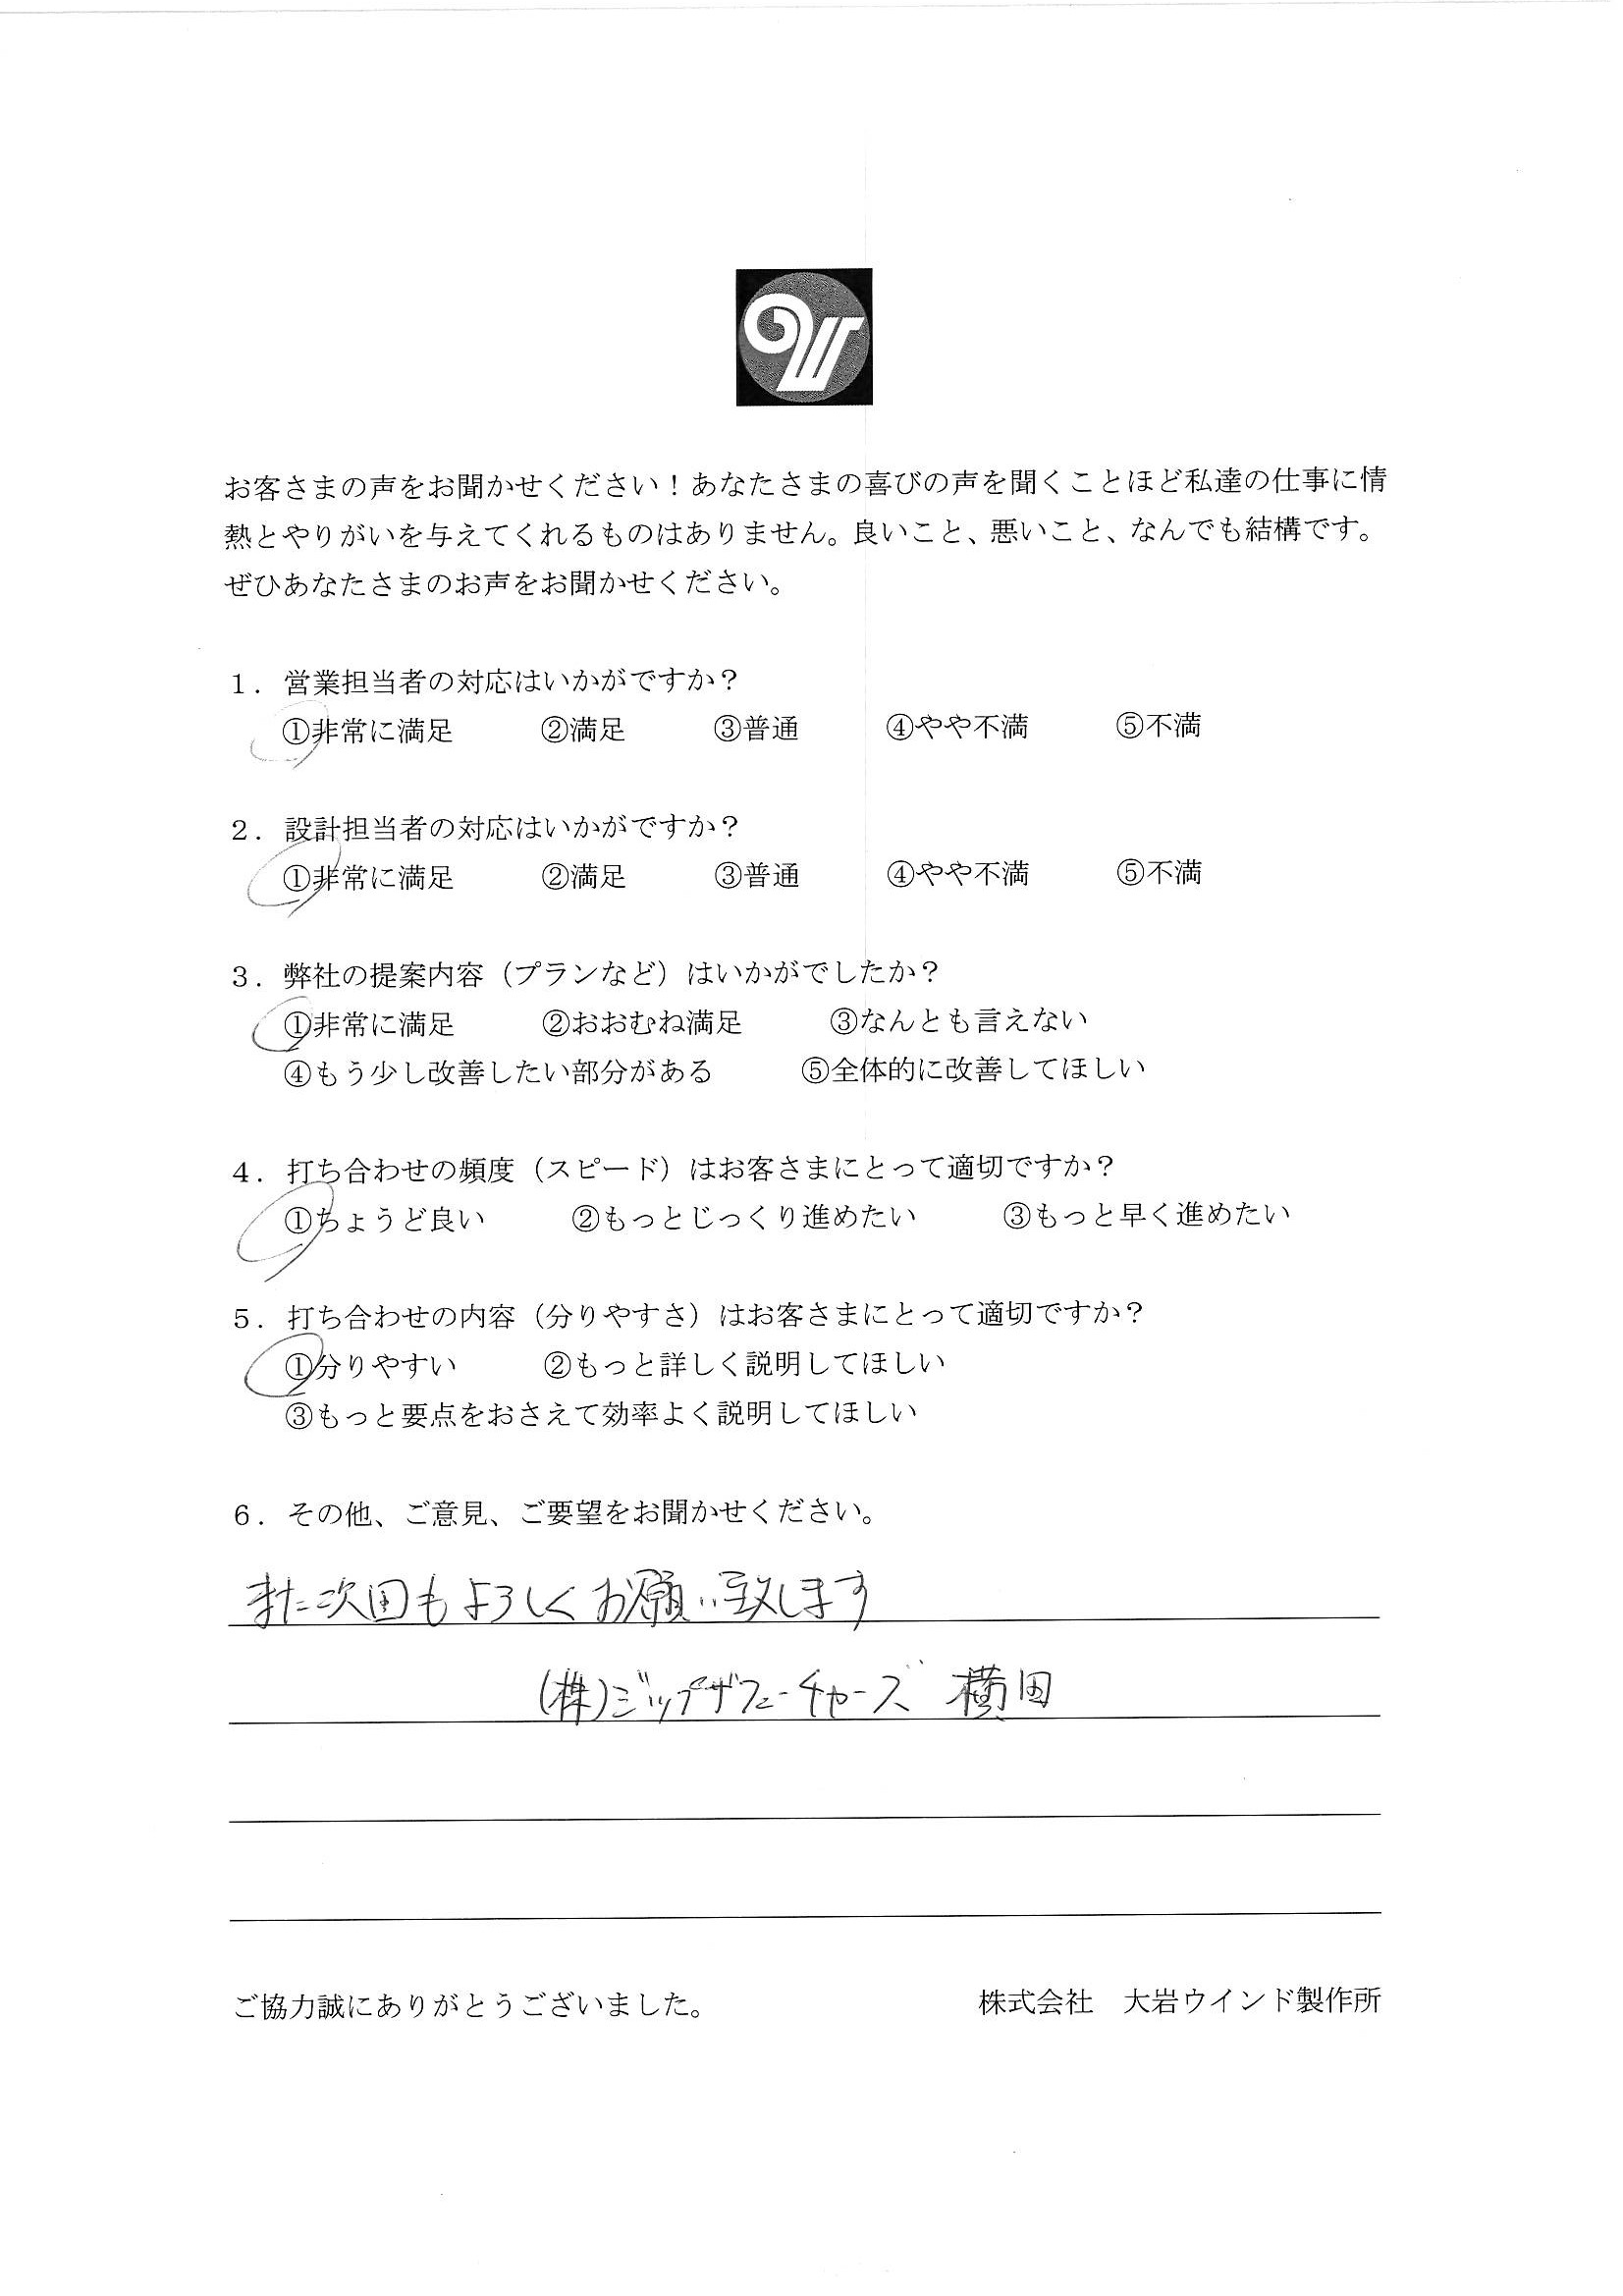 お客さまの声をお聞かせください！あなたさまの喜びの声を聞くことほど私達の仕事に情
熱とやりがいを与えてくれるものはありません。良いこと、悪いこと、なんでも結構です。
ぜひあなたさまのお声をお聞かせください。
１．営業担当者の対応はいかがですか？
①非常に満足　②満足　③普通　④やや不満　⑤不満
２．設計担当者の対応はいかがですか？
①非常に満足　②満足　③普通　④やや不満　⑤不満
３．弊社の提案内容（プランなど）はいかがでしたか？
①非常に満足　②おおむね満足　③なんとも言えない
④もう少し改善したい部分がある　⑤全体的に改善してほしい
４．打ち合わせの頻度（スピード）はお客さまにとって適切ですか？
①ちょうど良い　②もっとじっくり進めたい　③もっと早く進めたい
５．打ち合わせの内容（分りやすさ）はお客さまにとって適切ですか？
①分りやすい　②もっと詳しく説明してほしい
③もっと要点をおさえて効率よく説明してほしい
６．その他、ご意見、ご要望をお聞かせください。
また次回もよろしくお願い致します
(株)ジップザフューチャーズ 横田
ご協力誠にありがとうございました。　株式会社　大岩ウインド製作所